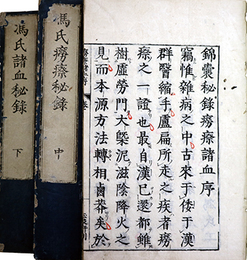 錦囊秘録癆瘵諸血序
竊惟雜病之中古來于倭于漢
群醫縮手盧扁所走之疾者癆
瘵之一證也最自漢已還都雖
樹虛勞門大槩泥滋陰降火之
見而本源方法轉相鹵莽矣於
馮氏癆瘵秘録 中
馮氏諸血秘録 下